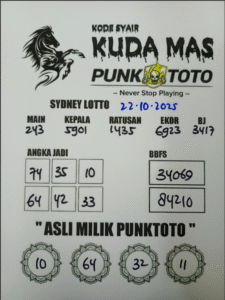 KODE SYAIR
KUDA MAS
PUNK TOTO
– Never Stop Playing –
SYDNEY LOTTO 22-10-2025
MAIN KEPALA RATUSAN EKOR BJ
243 5901 1435 6923 3417
ANGKA JADI BBFS
74 35 10 34069
64 42 33 84210
" ASLI MILIK PUNKTOTO "
10 64 32 11